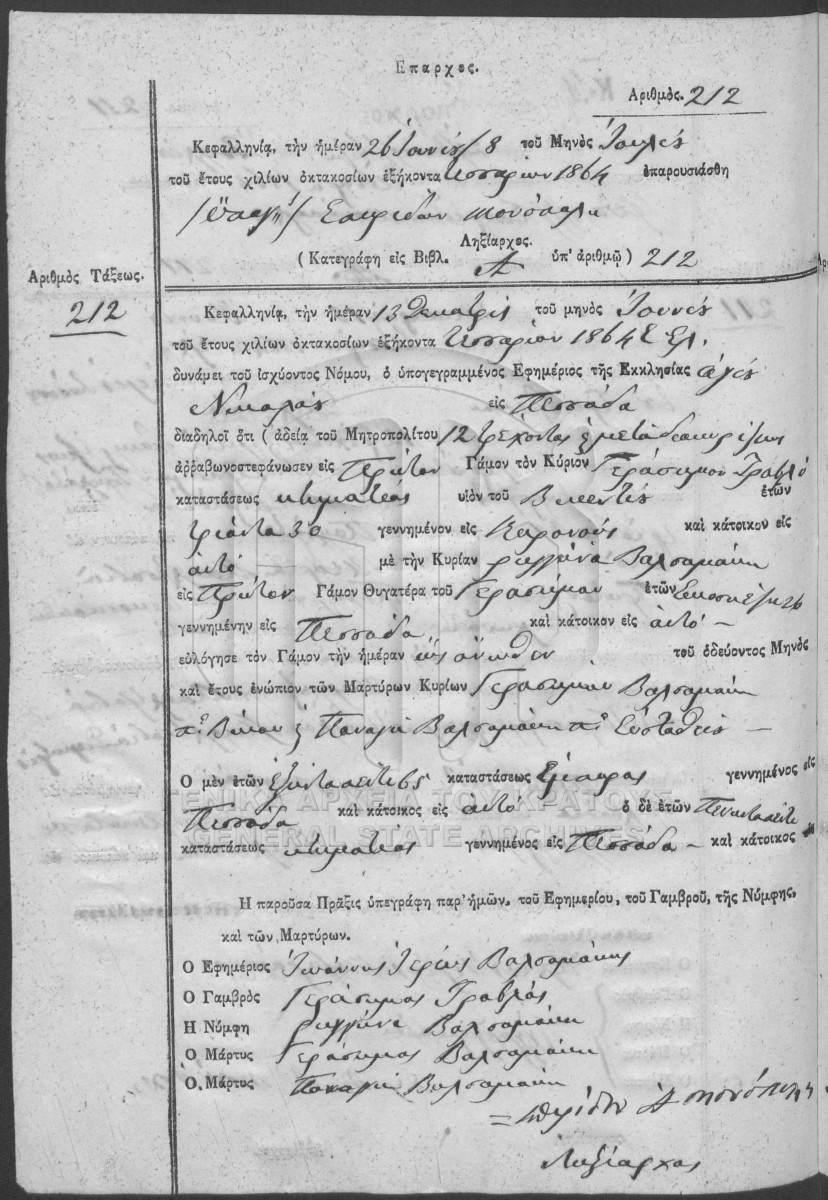 Επαρχος.
Αριθμὸς. 212
Κεφαλληνίᾳ, τὴν ἡμέραν 26 Ἰουνίȣ / 8 τοῦ Μηνὸς Ἰουλίȣ
τοῦ ἔτους χιλίων ὀκτακοσίων ἑξήκοντα τεσσάρων 1864 ἐπαρουσιάσθη
Ληξίαρχος.
( Κατεγράφη εἰς Βιβλ. Α ὑπ' ἀριθμῷ ) 212
Αριθμὸς Τάξεως.
212
Κεφαλληνίᾳ, τὴν ἡμέραν 13 Δεκατρὶς τοῦ μηνὸς Ἰουνίȣ
τοῦ ἔτους χιλίων ὀκτακοσίων ἑξήκοντα τεσσάρων 1864 Ε. Ε.
δυνάμει τοῦ ἰσχύοντος Νόμου, ὁ ὑπογεγραμμένος Ἐφημέριος τῆς Εκκλησίας ἁγίȣ
Νικολάȣ εἰς Πεσσάδα
διαδηλοῖ ὅτι ( ἀδείᾳ τοῦ Μητροπολίτου 12 τρέχοντος
ἀῤῥαβωνοστεφάνωσεν εἰς Πρῶτον Γάμον τὸν Κύριον Γεράσιμον Τραβλὸ
καταστάσεως κτηματίας υἱὸν τοῦ Βικεντίȣ ἐτῶν
τριάντα 30 γεννημένον εἰς Καρουσάδες καὶ κάτοικον εἰς
αὐτὸ μὲ τὴν Κυρίαν ῥεγγίνα Βαλσαμάκη
εἰς Πρῶτον Γάμον Θυγατέρα τοῦ Γερασίμου ἐτῶν εἴκοσι ἕξη 26
γεννημένην εἰς Πεσσάδα καὶ κάτοικον εἰς αὐτό –
εὐλόγησε τὸν Γάμον τὴν ἡμέραν ὡς ἄνωθεν τοῦ ὁδεύοντος Μηνὸς
καὶ ἔτους ἐνώπιον τῶν Μαρτύρων Κυρίων Γερασίμου Βαλσαμάκη
Παναγῆ Βαλσαμάκη πȣ̃ Εὐσταθίȣ –
Ο μὲν ἐτῶν ἑξῆντα πέντε 65 καταστάσεως γεννημένος εἰς
Πεσσάδα καὶ κάτοικος εἰς αὐτὸ ὁ δὲ ἐτῶν Πενῆντα πέντε
καταστάσεως κτηματίας γεννημένος εἰς Πεσσάδα – καὶ κάτοικος
ΓΕΝΙΚΑ ΑΡΧΕΙΑ ΤΟΥ ΚΡΑΤΟΥΣ
GENERAL STATE ARCHIVES
Η παροῦσα Πρᾶξις ὑπεγράφη παρ' ἡμῶν, τοῦ Εφημερίου, τοῦ Γαμβροῦ, τῆς Νύμφης,
καὶ τῶν Μαρτύρων.
Ο Εφημέριος Ἰωάννης Ἱερεὺς Βαλσαμάκης
Ο Γαμβρὸς Γεράσιμος Τραβλὸς
Η Νύμφη ρεγγίνα Βαλσαμάκη
Ο Μάρτυς Γεράσιμος Βαλσαμάκη
Ο Μάρτυς Παναγῆ Βαλσαμάκη
Ληξίαρχος